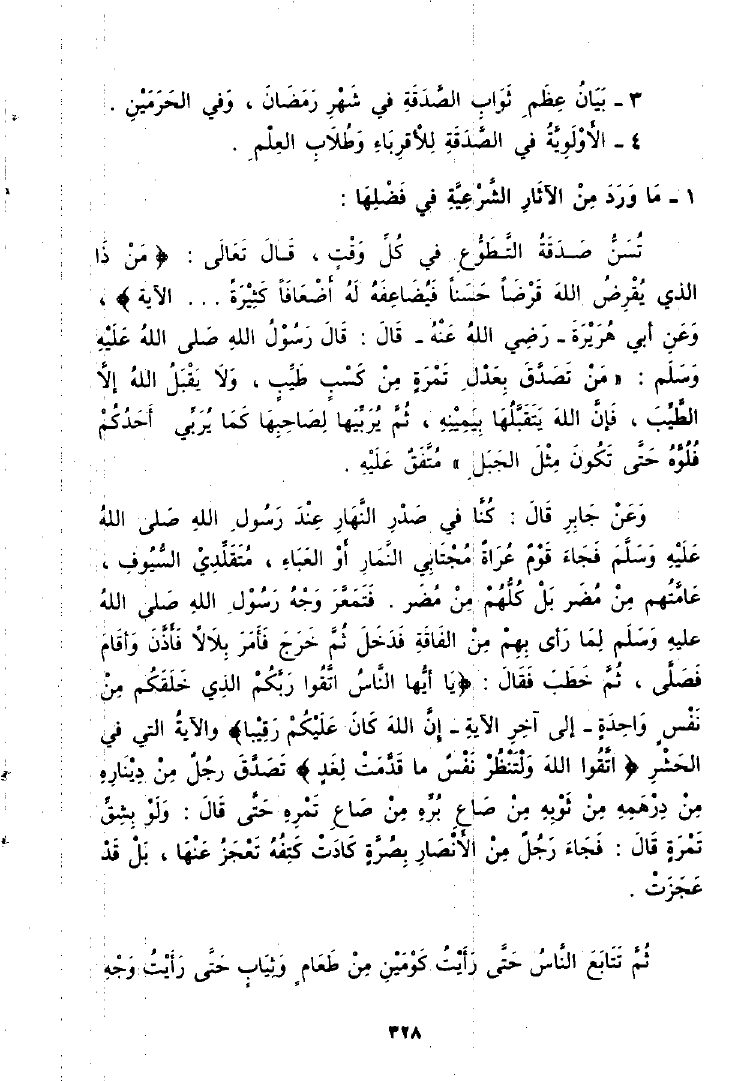 ٣ ـ بَيَانُ عِظَمِ ثَوَابِ الصَّدَقَةِ في شَهْرِ رَمَضَانَ ، وَفي الحَرَمَيْنِ .
٤ ـ الأَوْلَوِيَّةُ في الصَّدَقَةِ لِلْأقرِبَاءِ وَطُلَابِ العِلْمِ .
١ ـ مَا وَرَدَ مِنْ الآثَارِ الشَّرْعِيَّةِ في فَضْلِهَا :
تُسَنُّ صَدَقَةُ التَّطَوُّعِ في كُلِّ وَقْتٍ ، قَالَ تَعَالَى : ﴿ مَنْ ذَا
الذي يُقْرِضُ اللهَ قَرْضَاً حَسَنَاً فَيُضَاعِفَهُ لَهُ أَضْعَافَاً كَثِيْرَةً ... الآية ﴾ ،
وَعَنِ أبي هُرَيْرَةَ ـ رَضِي اللهُ عَنْهُ ـ قَالَ : قَالَ رَسُوْلُ اللهِ صَلى اللهُ عَلَيْهِ
وَسَلَم : « مَنْ تَصَدَّقَ بِعَدْلِ تَمْرَةٍ مِنْ كَسْبٍ طَيِّبٍ ، وَلَا يَقْبَلُ اللهُ إلَّا
الطَّيِّبَ ، فَإنَّ اللهَ يَتَقَبَّلُهَا بِيَمِيْنِهِ ، ثُمَّ يُرَبِّيَها لِصَاحِبِهَا كَمَا يُرَبِّي أَحَدُكُمْ
فُلُوَّهُ حَتَّى تَكُونَ مِثْلَ الجَبَلِ » مُتَّفَقٌ عَلَيْهِ .
وَعَنْ جَابِرٍ قَالَ : كُنَّا في صَدْرِ النَّهَارِ عِنْدَ رَسُولِ اللهِ صَلى اللهُ
عَلَيْهِ وَسَلَّمَ فَجَاءَ قَوْمٌ عُرَاةً مُجْتَابي النَّمَارِ أَوْ العَبَاءِ ، مُتَقَلِّدِيْ السُّيُوفِ ،
عَامَّتُهم مِنْ مُضَر بَلْ كُلُّهُمْ مِنْ مُضَر . فَتَمَعَّرَ وَجْهُ رَسُوْلِ اللهِ صَلى اللهُ
عليهِ وَسَلَم لِمَا رَأى بِهِمْ مِنْ الفَاقَةِ فَدَخَلَ ثُمَّ خَرَجَ فَأمَرَ بِلَالًا فَأَذَّنَ وَأقَامَ
فَصَلَّى ، ثُمَّ خَطَبَ فَقَالَ : ﴿يَا أيُّها النَّاسُ اتَّقُوا رَبَّكُمْ الذِي خَلَقَكُم مِنْ
نَفْسٍ وَاحِدَةٍ ـ إلى آخِرِ الآيَةِ ـ إنَّ اللهَ كَانَ عَلَيْكُمْ رَقِيْبا﴾ والآيَةُ التي في
الحَشْرِ ﴿ اتَّقُوا اللهَ وَلْتَنْظُرْ نَفْسٌ ما قَدَّمَتْ لِغَدٍ ﴾ تَصَدَّقَ رجُلٌ مِنْ دِيْنَارِهِ
مِنْ دِرْهَمِهِ مِنْ ثَوْبِهِ مِنْ صَاعِ بُرِّهِ مِنْ صَاعِ تَمْرِهِ حَتَّى قَالَ : وَلَوْ بِشِقِّ
تَمْرَةٍ قَالَ : فَجَاءَ رَجُلٌ مِنْ الأَنْصَارِ بِصُرَّةٍ كَادَتْ كَتِفُهُ تَعْجَزُ عَنْهَا ، بَلْ قَدْ
عَجَزَتْ .
ثُمَّ تَتَابَعَ النَّاسُ حَتَّى رَأَيْتُ كَوْمَيْنِ مِنْ طَعَامٍ وَثِيَابٍ حَتَّى رَأَيْتُ وَجْهِ
٣٢٨